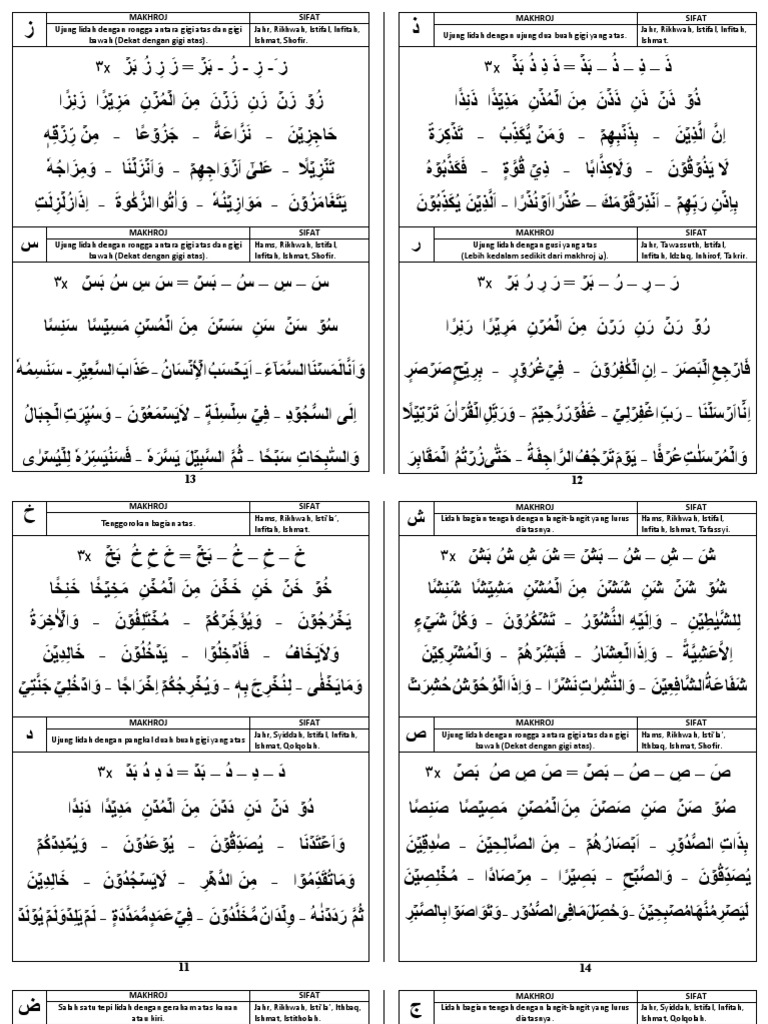 ز
MAKHROJ
SIFAT
Ujung lidah dengan rongga antara gigi atas dan gigi
bawah (Dekat dengan gigi atas).
Jahr, Rikhwah, Istifal, Infitah,
Ishmat, Shofir.
زَ - زِ - زُ - بَزْ = زَ زِ زُ بَزْ ٣x
زُوْ زَنْ زَنٍ زَزَنَ مِنَ الْمُزْنِ مَزِيْزًا زَنِزًا
حَاجِزِيْنَ - نَزَّاعَةً - جَزُوْعًا - مِنْ رِزْقِهٖ
تَنْزِيْلًا - عَلٰى اَزْوَاجِهِمْ - وَاَنْزَلْنَا - وَمِزَاجُهٗ
يَتَغَامَزُوْنَ - مَوَازِيْنُهٗ - وَاٰتُوا الزَّكٰوةَ - اِذَازُلْزِلَتِ
س
MAKHROJ
SIFAT
Ujung lidah dengan rongga antara gigi atas dan gigi
bawah (Dekat dengan gigi atas).
Hams, Rikhwah, Istifal,
Infitah, Ishmat, Shofir.
سَ – سِ – سُ – بَسْ = سَ سِ سُ بَسْ ٣x
سُوْ سَنْ سَنٍ سَسَنَ مِنَ الْمُسْنِ مَسِيْسًا سَنِسًا
وَاَنَّالَمَسْنَا السَّمَاۤءَ - اَيَحْسَبُ الْاِنْسَانُ - عَذَابَ السَّعِيْرِ - سَنَسِمُهٗ
اِلَى السُّجُوْدِ - فِيْ سِلْسِلَةٍ - لَايَسْمَعُوْنَ - وَسُيِّرَتِ الْجِبَالُ
وَالسّٰبِحَاتِ سَبْحًا - ثُمَّ السَّبِيْلَ يَسَّرَهٗ - فَسَنُيَسِّرُهٗ لِلْيُسْرٰى
13
ذ
MAKHROJ
SIFAT
Ujung lidah dengan ujung dua buah gigi yang atas.
Jahr, Rikhwah, Istifal, Infitah,
Ishmat.
ذَ – ذِ – ذُ – بَذْ = ذَ ذِ ذُ بَذْ ٣x
ذُوْ ذَنْ ذَنٍ ذَذَنَ مِنَ الْمُذْنِ مَذِيْذًا ذَنِذًا
اِنَّ الَّذِيْنَ - بِذَنْبِهِمْ - وَمَنْ يُكَذِّبُ - تَذْكِرَةٌ
لَا يَذُوْقُوْنَ - وَلَاكِذَّابًا - ذِيْ قُوَّةٍ - فَكَذَّبُوْهُ
بِاِذْنِ رَبِّهِمْ - اَنْذِرْقَوْمَكَ - عُذْرًا اَوْنُذْرًا - اَلَّذِيْنَ يُكَذِّبُوْنَ
ر
MAKHROJ
SIFAT
Ujung lidah dengan gusi yang atas
(Lebih kedalam sedikit dari makhroj ن).
Jahr, Tawassuth, Istifal,
Infitah, Idzlaq, Inhirof, Takrir.
رَ – رِ – رُ – بَرْ = رَ رِ رُ بَرْ ٣x
رُوْ رَنْ رَنٍ رَرَنَ مِنَ الْمُرْنِ مَرِيْرًا رَنِرًا
فَارْجِعِ الْبَصَرَ - اِنِ الْكٰفِرُوْنَ - فِيْ غُرُوْرٍ - بِرِيْحٍ صَرْصَرٍ
اِنَّا اَرْسَلْنَا - رَبِّ اغْفِرْلِيْ - غَفُوْرٌ رَّحِيْمٌ - وَرَتِّلِ الْقُرْاٰنَ تَرْتِيْلًا
وَالْمُرْسَلٰتِ عُرْفًا - يَوْمَ تَرْجُفُ الرَّاجِفَةُ - حَتّٰى زُرْتُمُ الْمَقَابِرَ
12
خ
MAKHROJ
SIFAT
Tenggorokan bagian atas.
Hams, Rikhwah, Isti'la',
Infitah, Ishmat.
خَ – خِ – خُ – بَخْ = خَ خِ خُ بَخْ ٣x
خُوْ خَنْ خَنٍ خَخَنَ مِنَ الْمُخْنِ مَخِيْخًا خَنِخًا
يَخْرُجُوْنَ - وَيُؤَخِّرْكُمْ - مُخْتَلِفُوْنَ - وَالْاٰخِرَةُ
وَلَايَخَافُ - فَاُدْخِلُوْا - يَدْخُلُوْنَ - خَالِدِيْنَ
وَمَايَخْفٰى - لِنُخْرِجَ بِهٖ - وَيُخْرِجُكُمْ اِخْرَاجًا - وَادْخُلِيْ جَنَّتِيْ
د
MAKHROJ
SIFAT
Ujung lidah dengan pangkal duah buah gigi yang atas
Jahr, Syiddah, Istifal, Infitah,
Ishmat, Qolqolah.
دَ – دِ – دُ – بَدْ = دَ دِ دُ بَدْ ٣x
دُوْ دَنْ دَنٍ دَدَنَ مِنَ الْمُدْنِ مَدِيْدًا دَنِدًا
وَاَعْتَدْنَا - يُصَدِّقُوْنَ - يُوْعَدُوْنَ - وَيُمْدِدْكُمْ
وَمَاتُقَدِّمُوْا - مِنَ الدَّهْرِ - لَايَسْجُدُوْنَ - خَالِدِيْنَ
ثُمَّ رَدَدْنٰهُ - وِلْدَانٌ مُّخَلَّدُوْنَ - فِيْ عَمَدٍ مُمَدَّدَةٍ - لَمْ يَلِدْوَلَمْ يُوْلَدْ
11
ش
MAKHROJ
SIFAT
Lidah bagian tengah dengan langit-langit yang lurus
diatasnya.
Hams, Rikhwah, Istifal,
Infitah, Ishmat, Tafassyi.
شَ – شِ – شُ – بَشْ = شَ شِ شُ بَشْ ٣x
شُوْ شَنْ شَنٍ شَشَنَ مِنَ الْمُشْنِ مَشِيْشًا شَنِشًا
لِلشَّيٰطِيْنِ - وَاِلَيْهِ النُّشُوْرُ - تَشْكُرُوْنَ - وَكُلَّ شَيْءٍ
اِلَّاعَشِيَّةً - وَاِذَا الْعِشَارُ - فَبَشِّرْهُمْ - وَالْمُشْرِكِيْنَ
شَفَاعَةُ الشَّافِعِيْنَ - وَالنّٰشِرٰتِ نَشْرًا - وَاِذَا الْوُحُوْشُ حُشِرَتْ
ص
MAKHROJ
SIFAT
Ujung lidah dengan rongga antara gigi atas dan gigi
bawah (Dekat dengan gigi atas).
Hams, Rikhwah, Isti'la',
Ithbaq, Ishmat, Shofir.
صَ – صِ – صُ – بَصْ = صَ صِ صُ بَصْ ٣x
صُوْ صَنْ صَنٍ صَصَنَ مِنَ الْمُصْنِ مَصِيْصًا صَنِصًا
بِذَاتِ الصُّدُوْرِ - اَبْصَارُهُمْ - مِنَ الصَّالِحِيْنَ - صٰدِقِيْنَ
يُصَدِّقُوْنَ - وَالصُّبْحِ - بَصِيْرًا - مِرْصَادًا - مُخْلِصِيْنَ
لَيَصْرِمُنَّهَامُصْبِحِيْنَ - وَحُصِّلَ مَافِى الصُّدُوْرِ - وَتَوَاصَوْا بِالصَّبْرِ
14
ض
MAKHROJ
SIFAT
Salah satu tepi lidah dengan geraham atas kanan
atau kiri.
Jahr, Rikhwah, Isti'la', Ithbaq,
Ishmat, Istitholah.
ج
MAKHROJ
SIFAT
Lidah bagian tengah dengan langit-langit yang lurus
diatasnya.
Jahr, Syiddah, Istifal, Infitah,
Ishmat, Qolqolah.